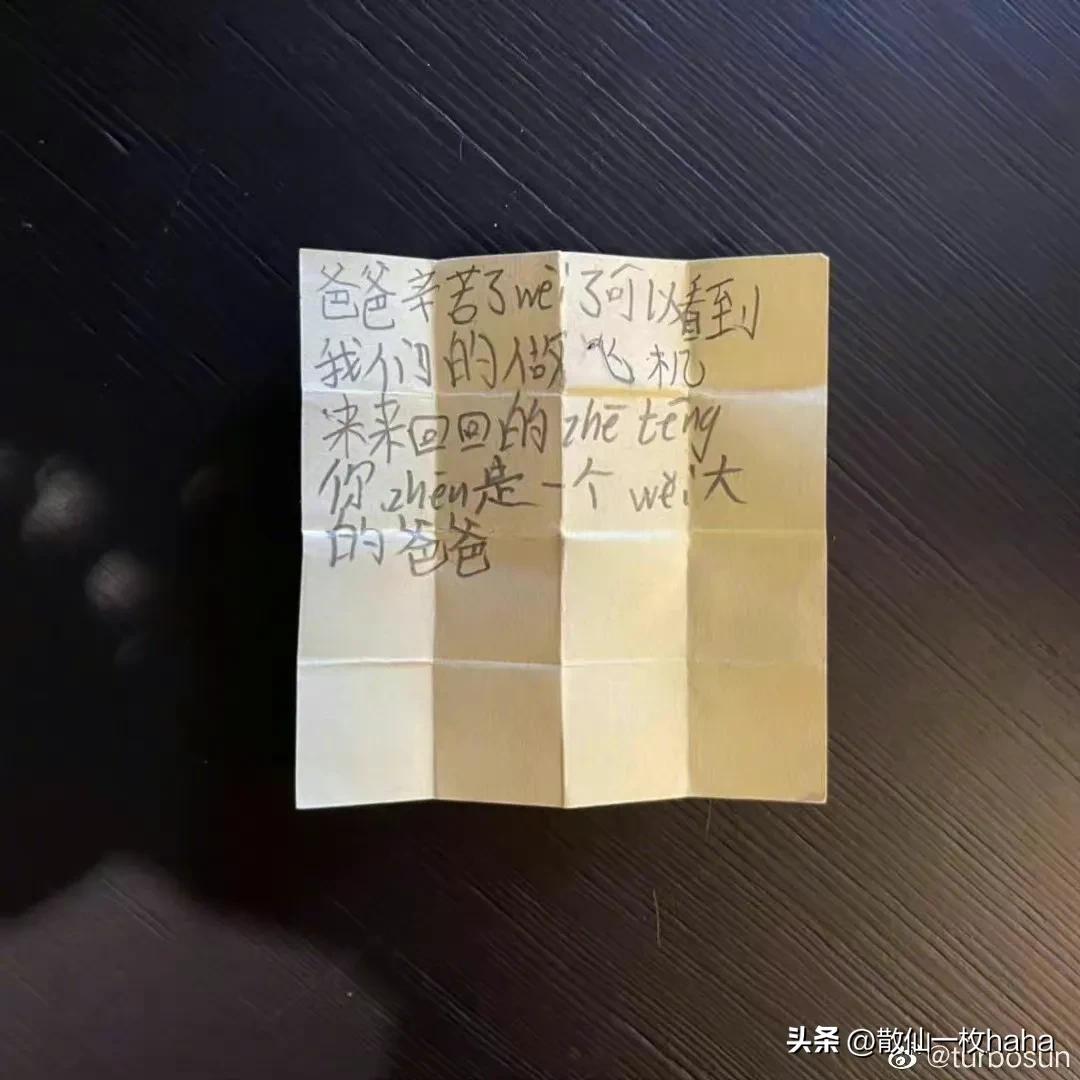 爸爸辛苦了wèi了可以看到
我们的做飞机
来来回回的zhē tēng
你zhēn是一个wěi大
的爸爸
头条 @散仙一枚haha
@turbosun